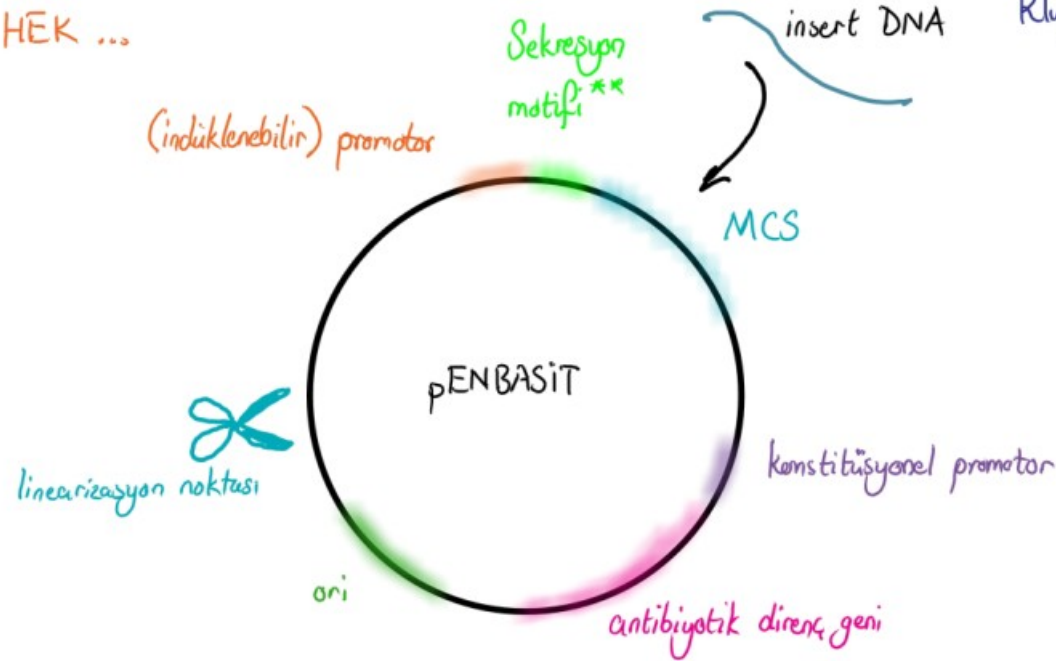 HEK ...
insert DNA
Klu
Sekresyon
motifi **
(indüklenebilir) promotor
MCS
pENBASİT
konstitüsyonel promotor
linearizasyon noktası
ori
antibiyotik direnç geni